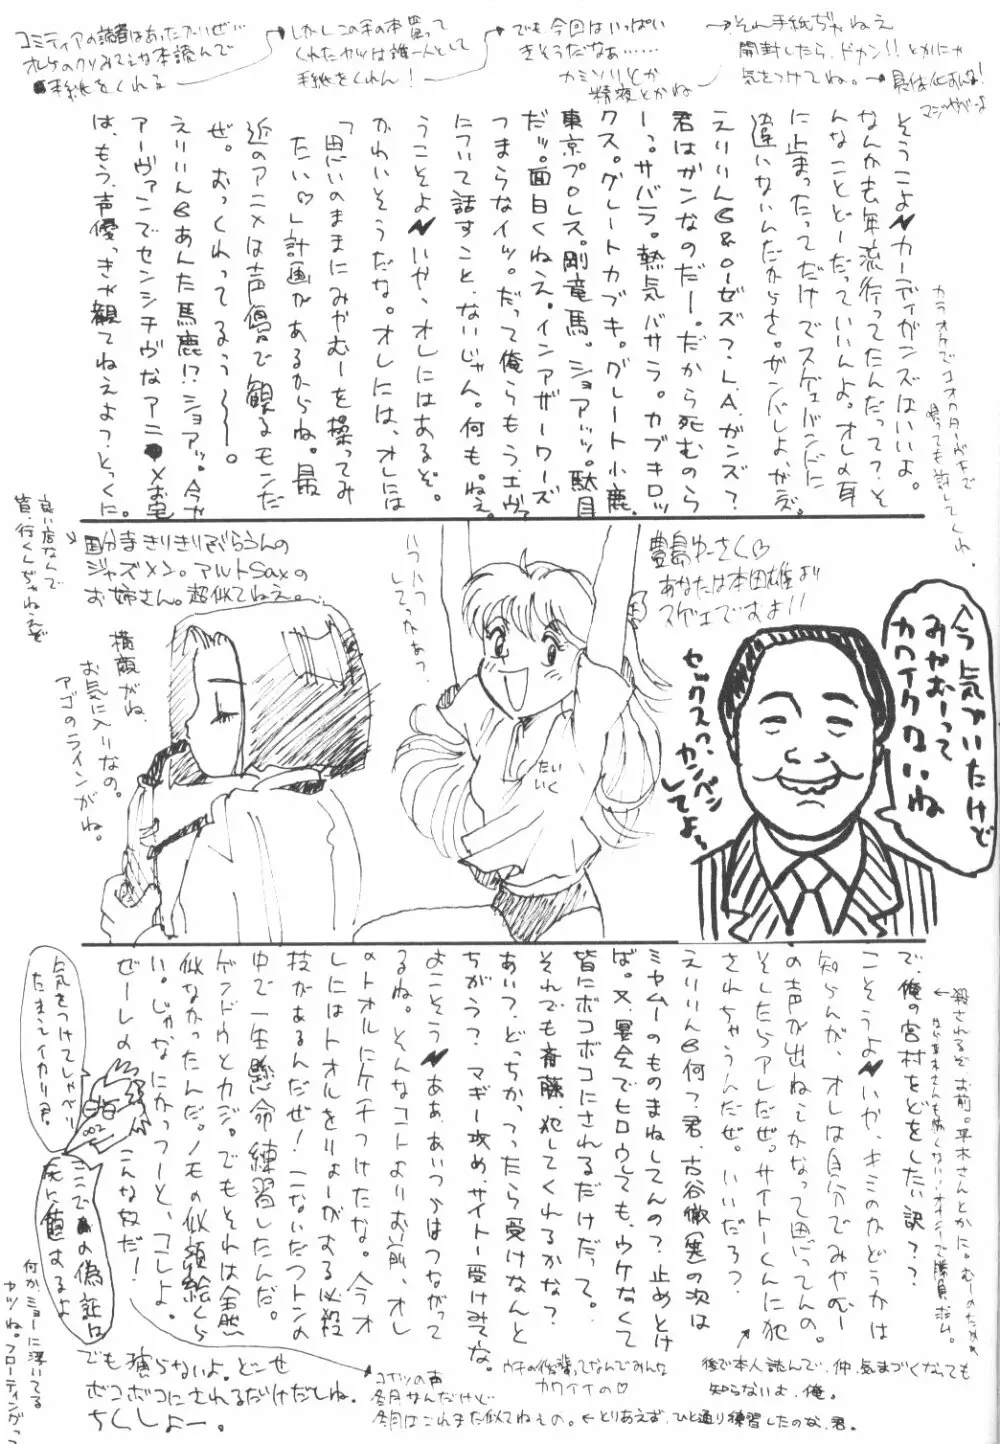 コミティアの読者はあったかいぜ…
オレゲのクソみてェな本読んで
手紙をくれる
しかしこの手の本買って
くれたヤツは誰一人として
手紙をくれん！
でも今回はいっぱい
きそうだなぁ……
カミソリとか
精液とかね
→それ手紙ぢゃねえ
開封したら、ドカン!!とかにゃ
気をつけてね。→具体化すんな！
マジっぽいよ
そうこよカーディガンズはいいよ。
なんかも年流行ってたんだって？そ
んなことどーだっていいんよ。オレの耳
に止まったってだけでスゲェバンドに
違いないんだからさ。ザンバしよ、がズ。
えりりんＧ＆ローゼズ？Ｌ．Ａ．ガンズ？
君はガンなのだー。だから死むのら
ーっ。サバラ。熱気バサラ。カブキロッ
クス。グレートカブキ。グレート小鹿。
東京プロレス。剛竜馬。ショアッッ。駄目
だッ。面白くねえ。インアザーワーズ
つまらなイッ。だって俺らもう、エヴァ
について話すこと、ないじゃん。何も。ねえ。
うこそよいや、オレにはあるぞ。
かわいそうだな。オレには、オレには
「思いのままにみやむーを操ってみ
たい♡」計画があるからね。最
近のアニメは声優で観るモンだ
ぜ。おっくれってるぅぅ～～～。
えりりんＧあんた馬鹿!?ショアッ。今や
アーヴァンでセンシチヴなアニメお宅
は、もう、声優っきゃ観てねえよっ、とっくに。
カラオケでコオロギーがなで
唄っても許してくれ。
良い店なんで
皆、行くんぢゃねえぞ
国分まきりきりぎらうんの
ジャズメン。アルトSaxの
お姉さん。超似てねえ。
横顔がね、
お気に入りなの。
アゴのラインがね。
ハフハフ
してっなぁっ
たいいく
豊島ゆーさく♡
あなたは本田雄より
スゲェですよ!!
セックスっ、カンベンしてよぅ
今気づいたけど
みやむーって
カワイクないね
で、俺の宮村をどをしたい訳？？
こそうよいや、キミのかどうかは
知らんが、オレは自分でみやむー
の声が出ねーしかなって思ってんの。
そしたらアレだぜ。サイトーくんに犯
されちゃうんだぜ。いいだろ？
えりりんＧ何？君、古谷徹(笑)の次は
ミヤムーのものまねしてんの？止めとけ
ば。又、宴会でヒロウしても、ウケなくて
皆にボコボコにされるだけだって。
それでも斉藤、犯してくれるかな？
あいつ、どっちかっつったら受けなんと
ちがう？マギー攻め、サイトー受けみてな。
よこそうああ、あいつらはつながって
るね。そんなコトよりお前、オレ
のトオルにケチつけたな。今オ
レにはトオルをりょーがする必殺
技があるんだぜ！こないだフトンの
中で一生懸命練習したんだ。
ゲンドウとカジ。でもそれは全然
似なかったんだ。ノモの似顔絵くら
い。じゃなにかっつーと、コレよ。
ぜーレの　こんな奴だ！
←殺されるぞ、お前。平木さんとかに。むーのためめ
気をつけてしゃべり
たまえイカリ君。
ここでの偽証は
死に値するよ
何か、ミョーに浮いてる
ヤツね。フローティングっつ
でも殯らないよ。どーせ
ボコボコにされるだけだしね。
ちくしょー。
コヤツの声
各月サんだけど
各月はこれまた似てねえの。←とりあえず、ひと通り練習したのな、君。
ウチの後輩ってなんでみんな
カワイイの♡
後で本人読んで、仲、気まづくなっても
知らないよ、俺。